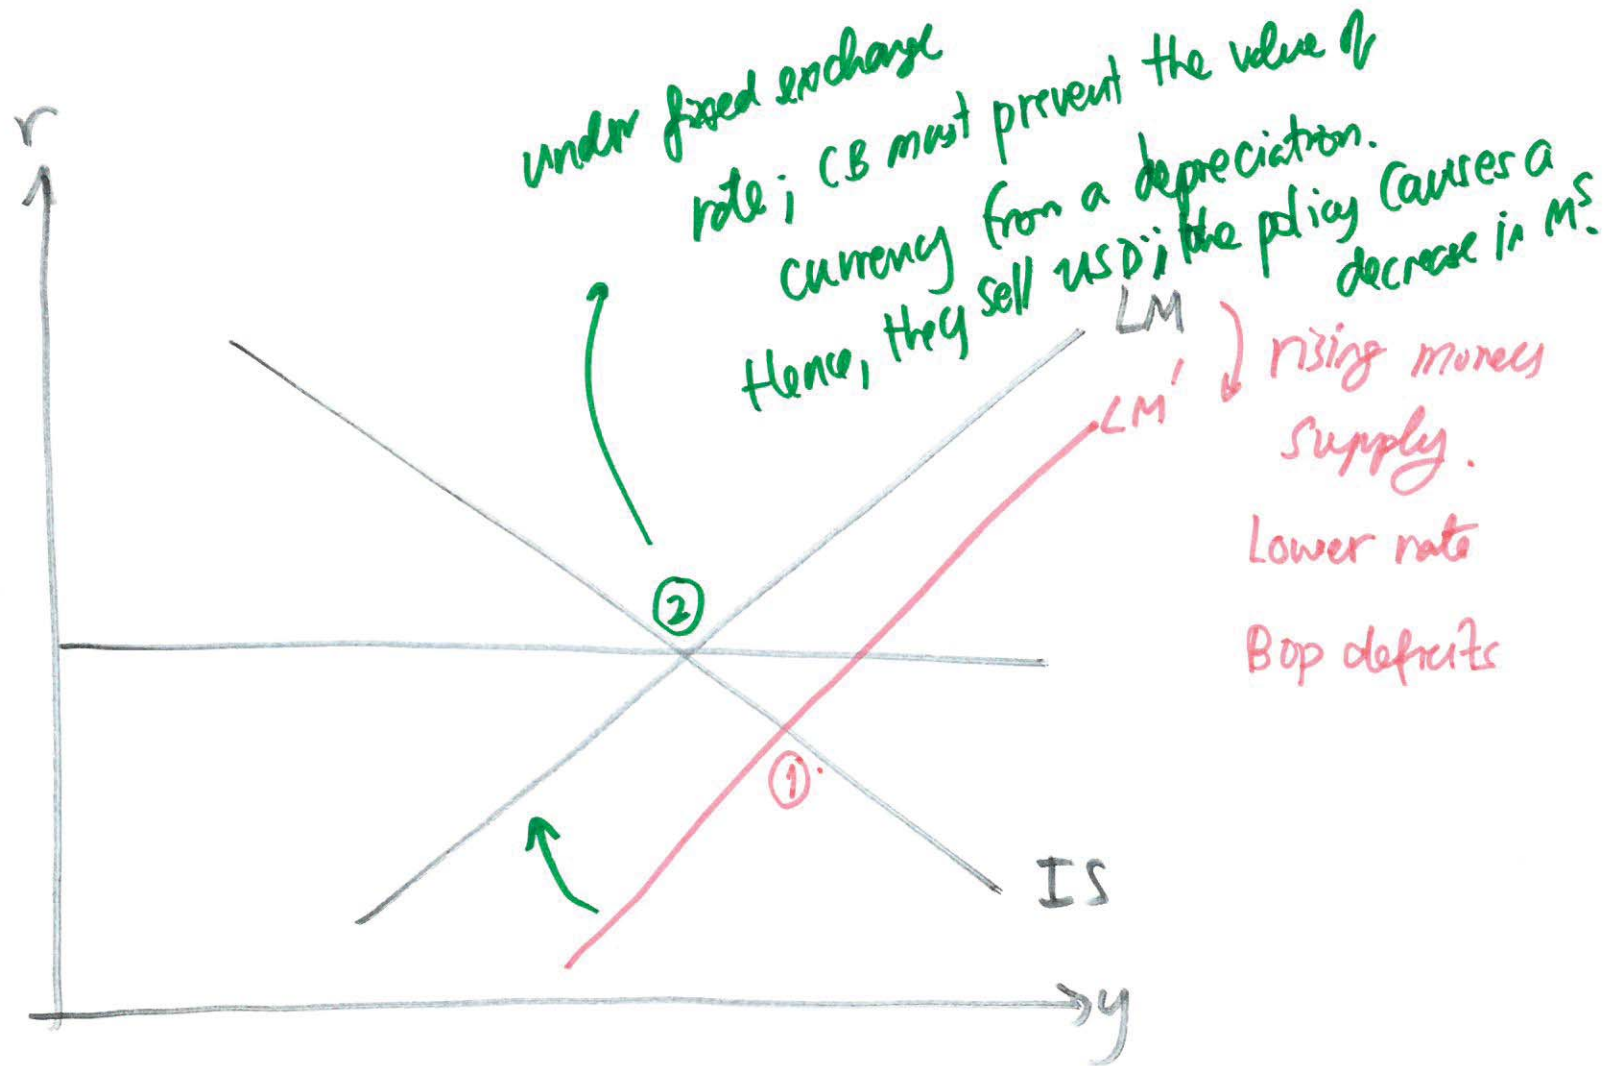 under fixed exchange
rate; CB must prevent the value of
currency from a depreciation.
Hence, they sell USD; the policy causes a
decrease in Mˢ.
r
LM
LM'
rising money
supply.
Lower rate
BOP deficits
②
①
IS
y